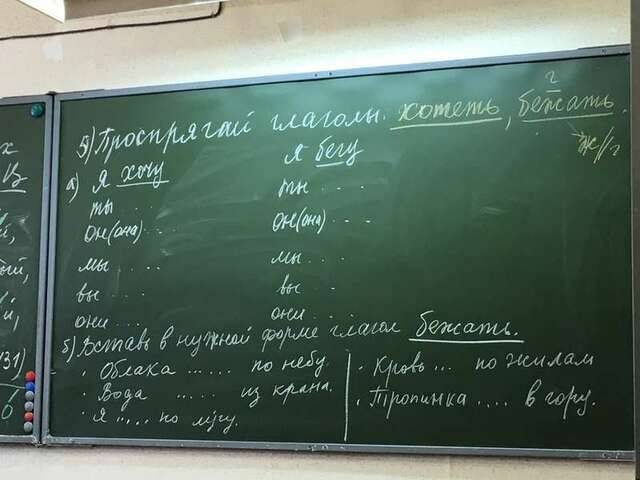 х
В
г
5) Проспрягай глаголы. хотеть, бежать.
ж//г
а) Я хочу
ты . . .
он(она) . . .
мы . . . .
вы . . .
они . . .
Я бегу
ты . . .
он(она) . . .
мы . . .
вы . . .
они . . .
б) Вставь в нужной форме глагол бежать.
· Облака ...... по небу.
· Вода ...... из крана.
· Я ..... по лугу.
· Кровь ... по жилам
· Тропинка .... в гору.
31)